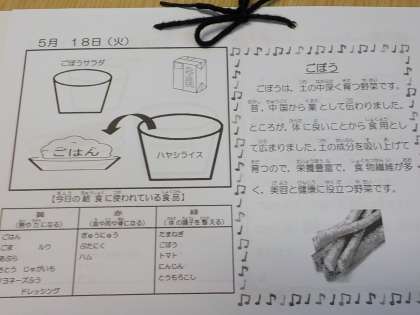 5月 18日(火)
ごぼうサラダ
ごはん
ハヤシライス
【今日の給食に使われている食品】
黄 赤 緑
(熱や力になる) (血や肉や骨になる) (体の調子を整える)
ごはん ぎゅうにゅう たまねぎ
ごま ルウ ぶたにく ごぼう
あぶら ハム トマト
さとう じゃがいも にんじん
マヨネーズふう とうもろこし
ドレッシング
ごぼう
ごぼうは、土の中深く育つ野菜です。
昔、中国から薬として伝わりました。
ところが、体に良いことから食用とし
て広まりました。土の成分を吸い上げて
育つので、栄養豊富で、食物繊維が多
く、美容と健康に役立つ野菜です。